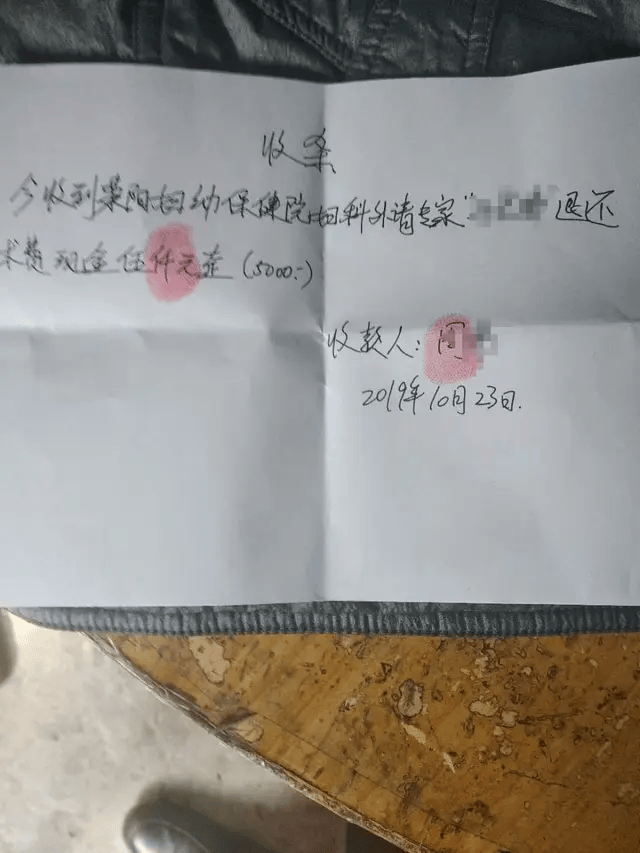 收条
今收到荥阳妇幼保健院妇科外请专家“ ”退还
术费现金伍仟元整（5000:-）
收款人：闫
2019年10月23日.